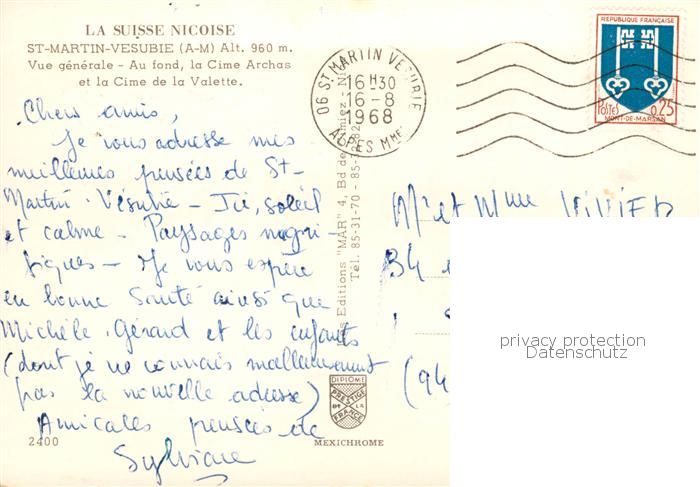 LA SUISSE NICOISE
ST-MARTIN-VESUBIE (A-M) Alt. 960 m.
Vue générale - Au fond, la Cime Archas
et la Cime de la Valette.
Chers amis,
Je vous adresse mes
meilleures pensées de St-
Martin-Vésubie - Ici, soleil
et calme - Paysages magni-
fiques - Je vous espère
en bonne santé ainsi que
Michèle, Gérard et les enfants
(dont je ne connais malheureusement
pas la nouvelle adresse)
Amicales pensées de
Sylviane
2400
06 ST MARTIN VESUBIE
16H30
16-8
1968
ALPES MMES
REPUBLIQUE FRANÇAISE
POSTES 0,25
MONT-DE-MARSAN
Editions "MAR" 4, Bd de Cimiez - Nice
Tél. 85-31-70 - 85-
DIPLOME
PRESTIGE
DE LA
FRANCE
MEXICHROME
Mr et Mme VIVIER
34
(94
privacy protection
Datenschutz